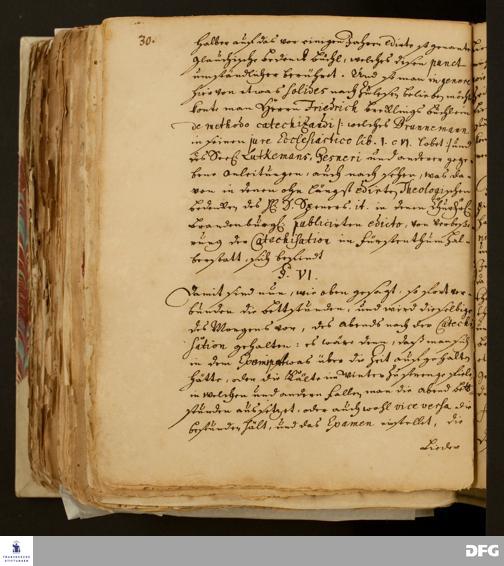 30.
halber auf das vor einigen Jahren edirte so genante
Glauchische Gedenck büchl, welches diesen punct
umständlicher berühret. Und so man ingenere
hievon etwas solides nachzulesen belieben möchte
könte man Herrn Friedrich büchlein
de methodo catechizandi /: welches Brunnemann
in seinen jure Ecclesiastico lib. 1. c. VI. lobet :/ und
des Lutkemans, Gesneri und anderer gege-
bene Anleitungen, auch nachsehen, was da-
von in denen ohn längst edirten Theologischen
Bedencken des H. D. Speners. it. in denen
Brandenburg. publicirten edicto, von verbeße-
rung der Catechisation im Fürstenthum Hal-
berstatt, sich befindt
§. VI.
Damit sind nun, wie oben gesagt, so fort ver-
bunden die bettstunden, und wird dieselbige
des Morgens vor, des Abends nach der Catechi-
sation gehalten: es wäre denn, daß man sich
in dem Examen etwas über die Zeit aufgehalten
hätte, oder die Kälte im winter zu strenge fiele
in welchen und andern fällen man die abend bett-
stunden aussetzet, oder auch wohl vice versa die
betstunden hält, und das Examen einstellet, die
Lieder
FRANCKESCHE
STIFTUNGEN
DFG